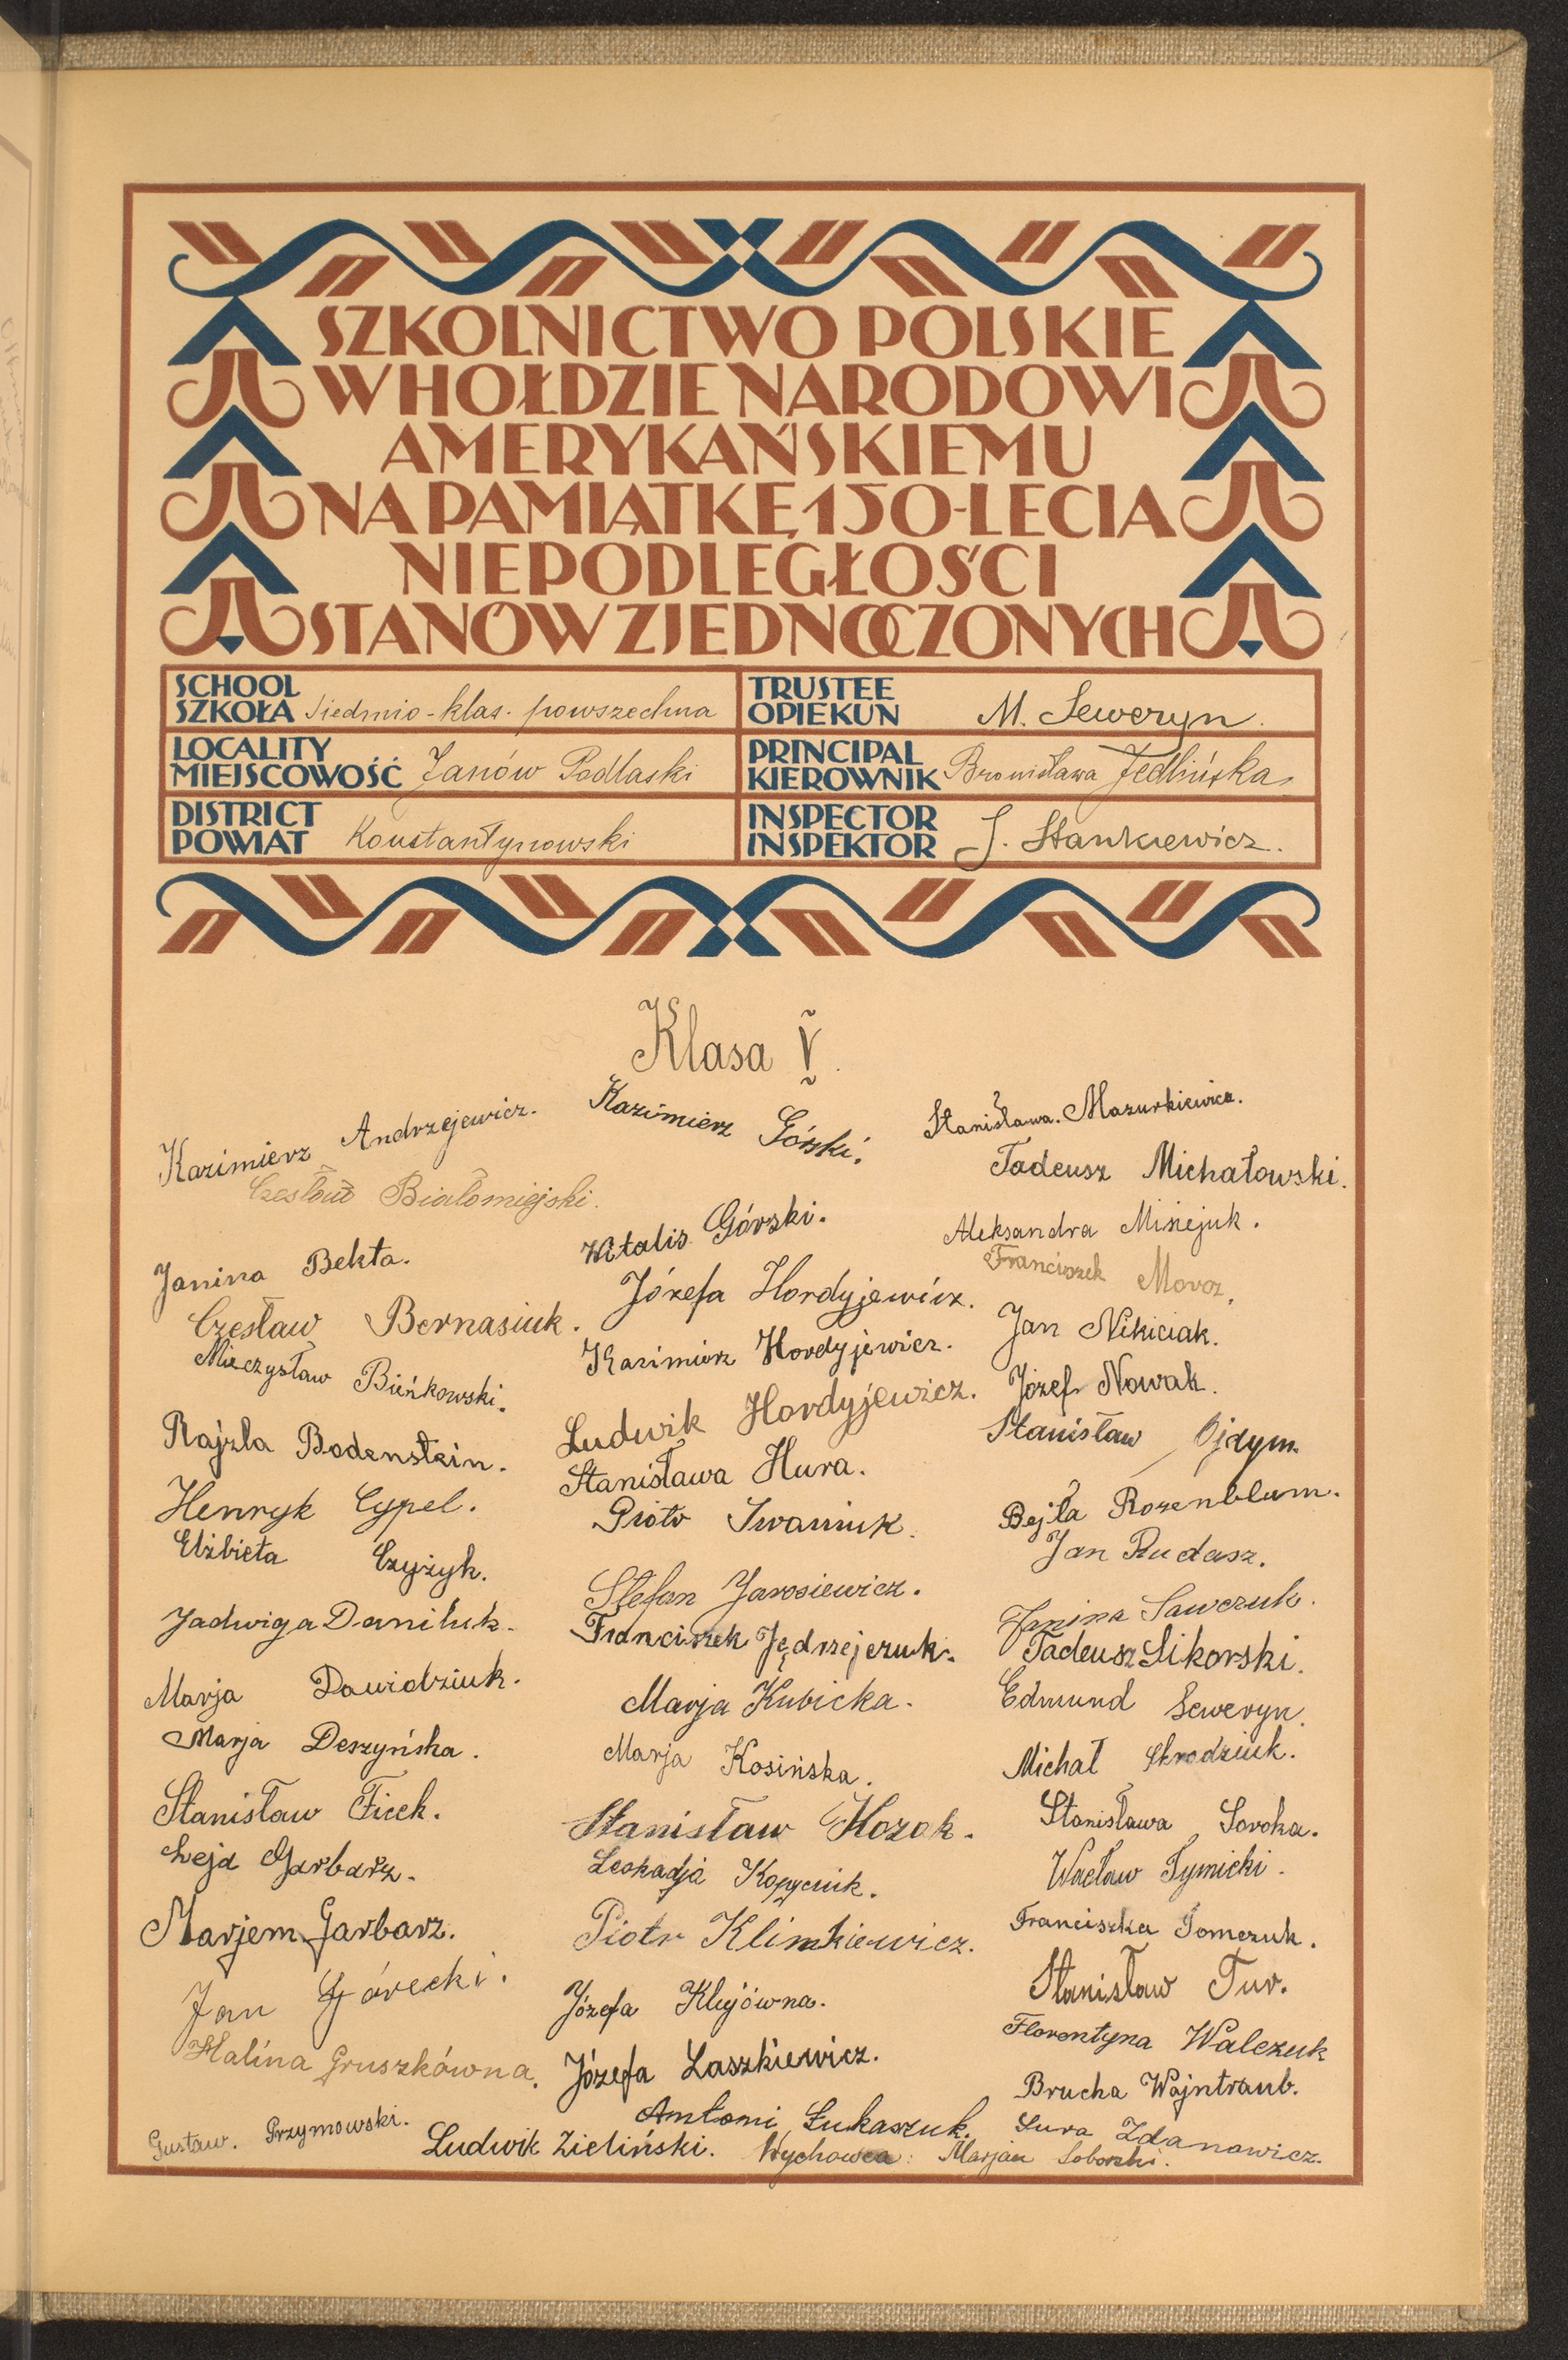 SZKOLNICTWO POLSKIE
W HOŁDZIE NARODOWI
AMERYKAŃSKIEMU
NA PAMIĄTKĘ 150-LECIA
NIEPODLEGŁOŚCI
STANÓW ZJEDNOCZONYCH
SCHOOL
SZKOŁA Siedmio-klas. powszechna
TRUSTEE
OPIEKUN M. Seweryn.
LOCALITY
MIEJSCOWOŚĆ Janów Podlaski
PRINCIPAL
KIEROWNIK Bronisława Jedlińska
DISTRICT
POWIAT Konstantynowski
INSPECTOR
INSPEKTOR J. Stankiewicz.
Klasa V.
Kazimierz Andrzejewicz.
Czesław Białomiejski.
Janina Bekta.
Czesław Bernasiuk.
Mieczysław Bieńkowski.
Rajzla Bodenstein.
Henryk Cypel.
Elżbieta Czyżyk.
Jadwiga Daniluk.
Marja Dawidziuk.
Marja Deszyńska.
Stanisław Ficek.
Łeja Garbarz.
Marjem Garbarz.
Jan Górecki.
Halina Gruszkówna.
Gustaw. Przymowski.
Kazimierz Górski.
Witalis Górski.
Józefa Hordyjewicz.
Kazimierz Hordyjewicz.
Ludwik Hordyjewicz.
Stanisława Hura.
Piotr Iwaniuk.
Stefan Jarosiewicz.
Franciszek Jędrzejczuk.
Marja Kubicka.
Marja Kosińska.
Stanisław Kozak.
Leokadja Kopyciuk.
Piotr Klimkiewicz.
Józefa Klujówna.
Józefa Laszkiewicz.
Antoni Łukaszuk.
Ludwik Zieliński.
Stanisława. Mazurkiewicz.
Tadeusz Michałowski.
Aleksandra Misiejuk.
Franciszek Moroz.
Jan Nikiciak.
Józef Nowak.
Stanisław Ojdym.
Bejla Rozenblum.
Jan Rudasz.
Janina Sawczuk.
Tadeusz Sikorski.
Edmund Seweryn.
Michał Skrodziuk.
Stanisława Soroka.
Wacław Tymicki.
Franciszka Tomczuk.
Stanisław Tur.
Florentyna Walczuk
Brucha Wajntraub.
Sura Zdanowicz.
Wychowca: Marjan Soborski.